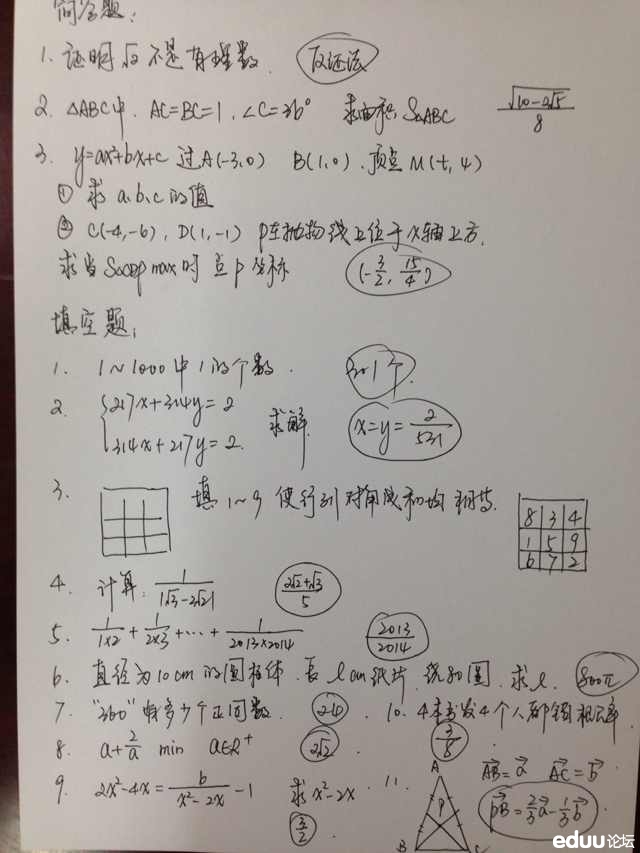 简答题:
1. 证明√2不是有理数. 反证法
2. △ABC中. AC=BC=1. ∠C=36° 求面积 S△ABC √10-2√5/8
3. y=ax²+bx+c 过A(-3,0) B(1,0). 顶点M(t,4)
① 求a.b.c的值
② C(-4,-6), D(1,-1) P在抛物线上位于x轴上方.
求当S△CDP max时 点P坐标 (-3/2, 15/4)
填空题:
1. 1~1000中1的个数. 301个.
2. {217x+314y=2 314x+217y=2. 求解. x=y=2/531
3. 填1~9 使行列对角线和均相等.
8 3 4
1 5 9
6 7 2
4. 计算: 1/|√3-2√2| 2√2+√3/5
5. 1/1×2 + 1/2×3 + … + 1/2013×2014 2013/2014
6. 直径为10cm的圆柱体. 长l cm纸片. 绕80圈. 求l. 800π
7. "360"有多少个正因数. 24.
10. 4本书发4个人都错概率. 3/8.
8. a+2/a min a∈R⁺ 2√2.
9. 2x²-4x=6/x²-2x -1 求x²-2x. 3/2.
11. A P B C AB=a AC=b
PB=2/3a-1/3b
eduu论坛